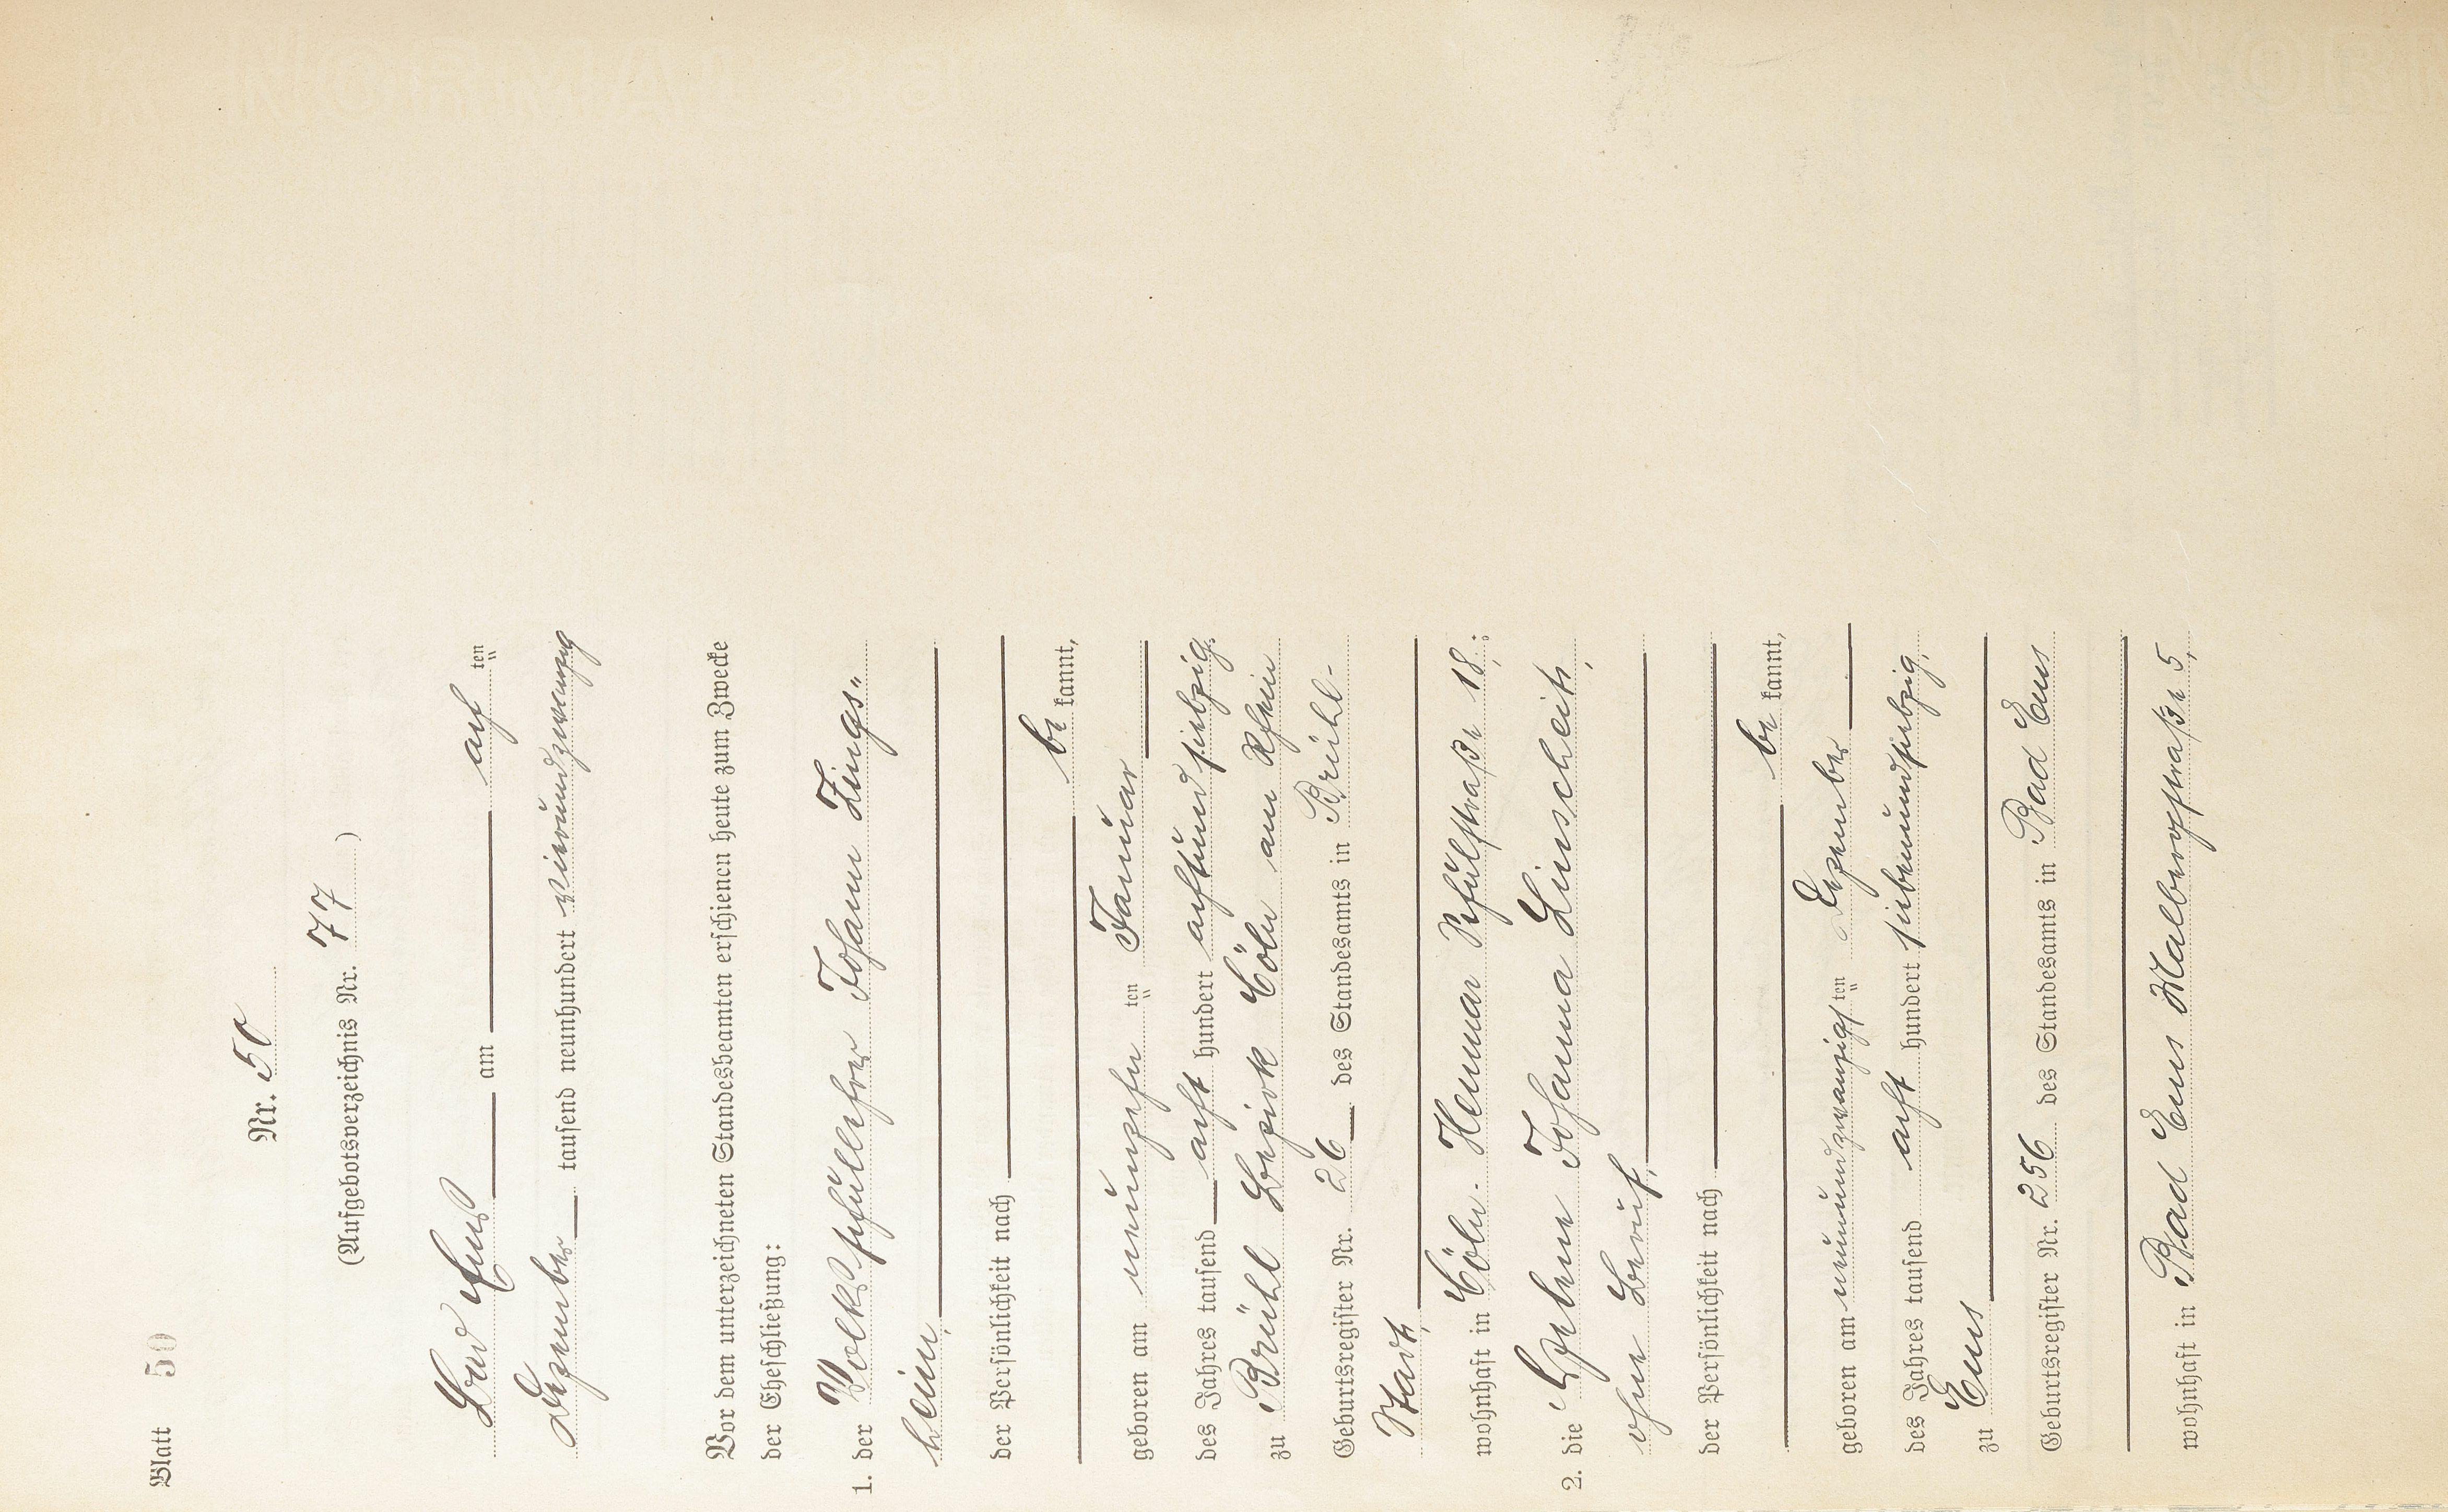 Blatt 50
Nr. 50
(Aufgebotsverzeichnis Nr. 77)
Bad Ems am acht ten
Dezember tausend neunhundert vierundzwanzig
Vor dem unterzeichneten Standesbeamten erschienen heute zum Zwecke
der Eheschließung:
1. der Volksschullehrer Johann Zings-
heim,
der Persönlichkeit nach
be kannt,
geboren am neunzehn ten Januar
des Jahres tausend acht hundert achtundsiebzig.
zu Brühl Bezirk Cöln am Rhein
Geburtsregister Nr. 26 des Standesamts in Brühl-
Stadt,
wohnhaft in Cöln-Neumar Schulstraße 18;
2. die Johanna Linscheid,
ohne Beruf,
der Persönlichkeit nach
be kannt,
geboren am neunundzwanzigsten Dezember
des Jahres tausend acht hundert siebenundsiebzig,
zu Ems
Geburtsregister Nr. 256 des Standesamts in Bad Ems
wohnhaft in Bad Ems Malbergstraße 5,